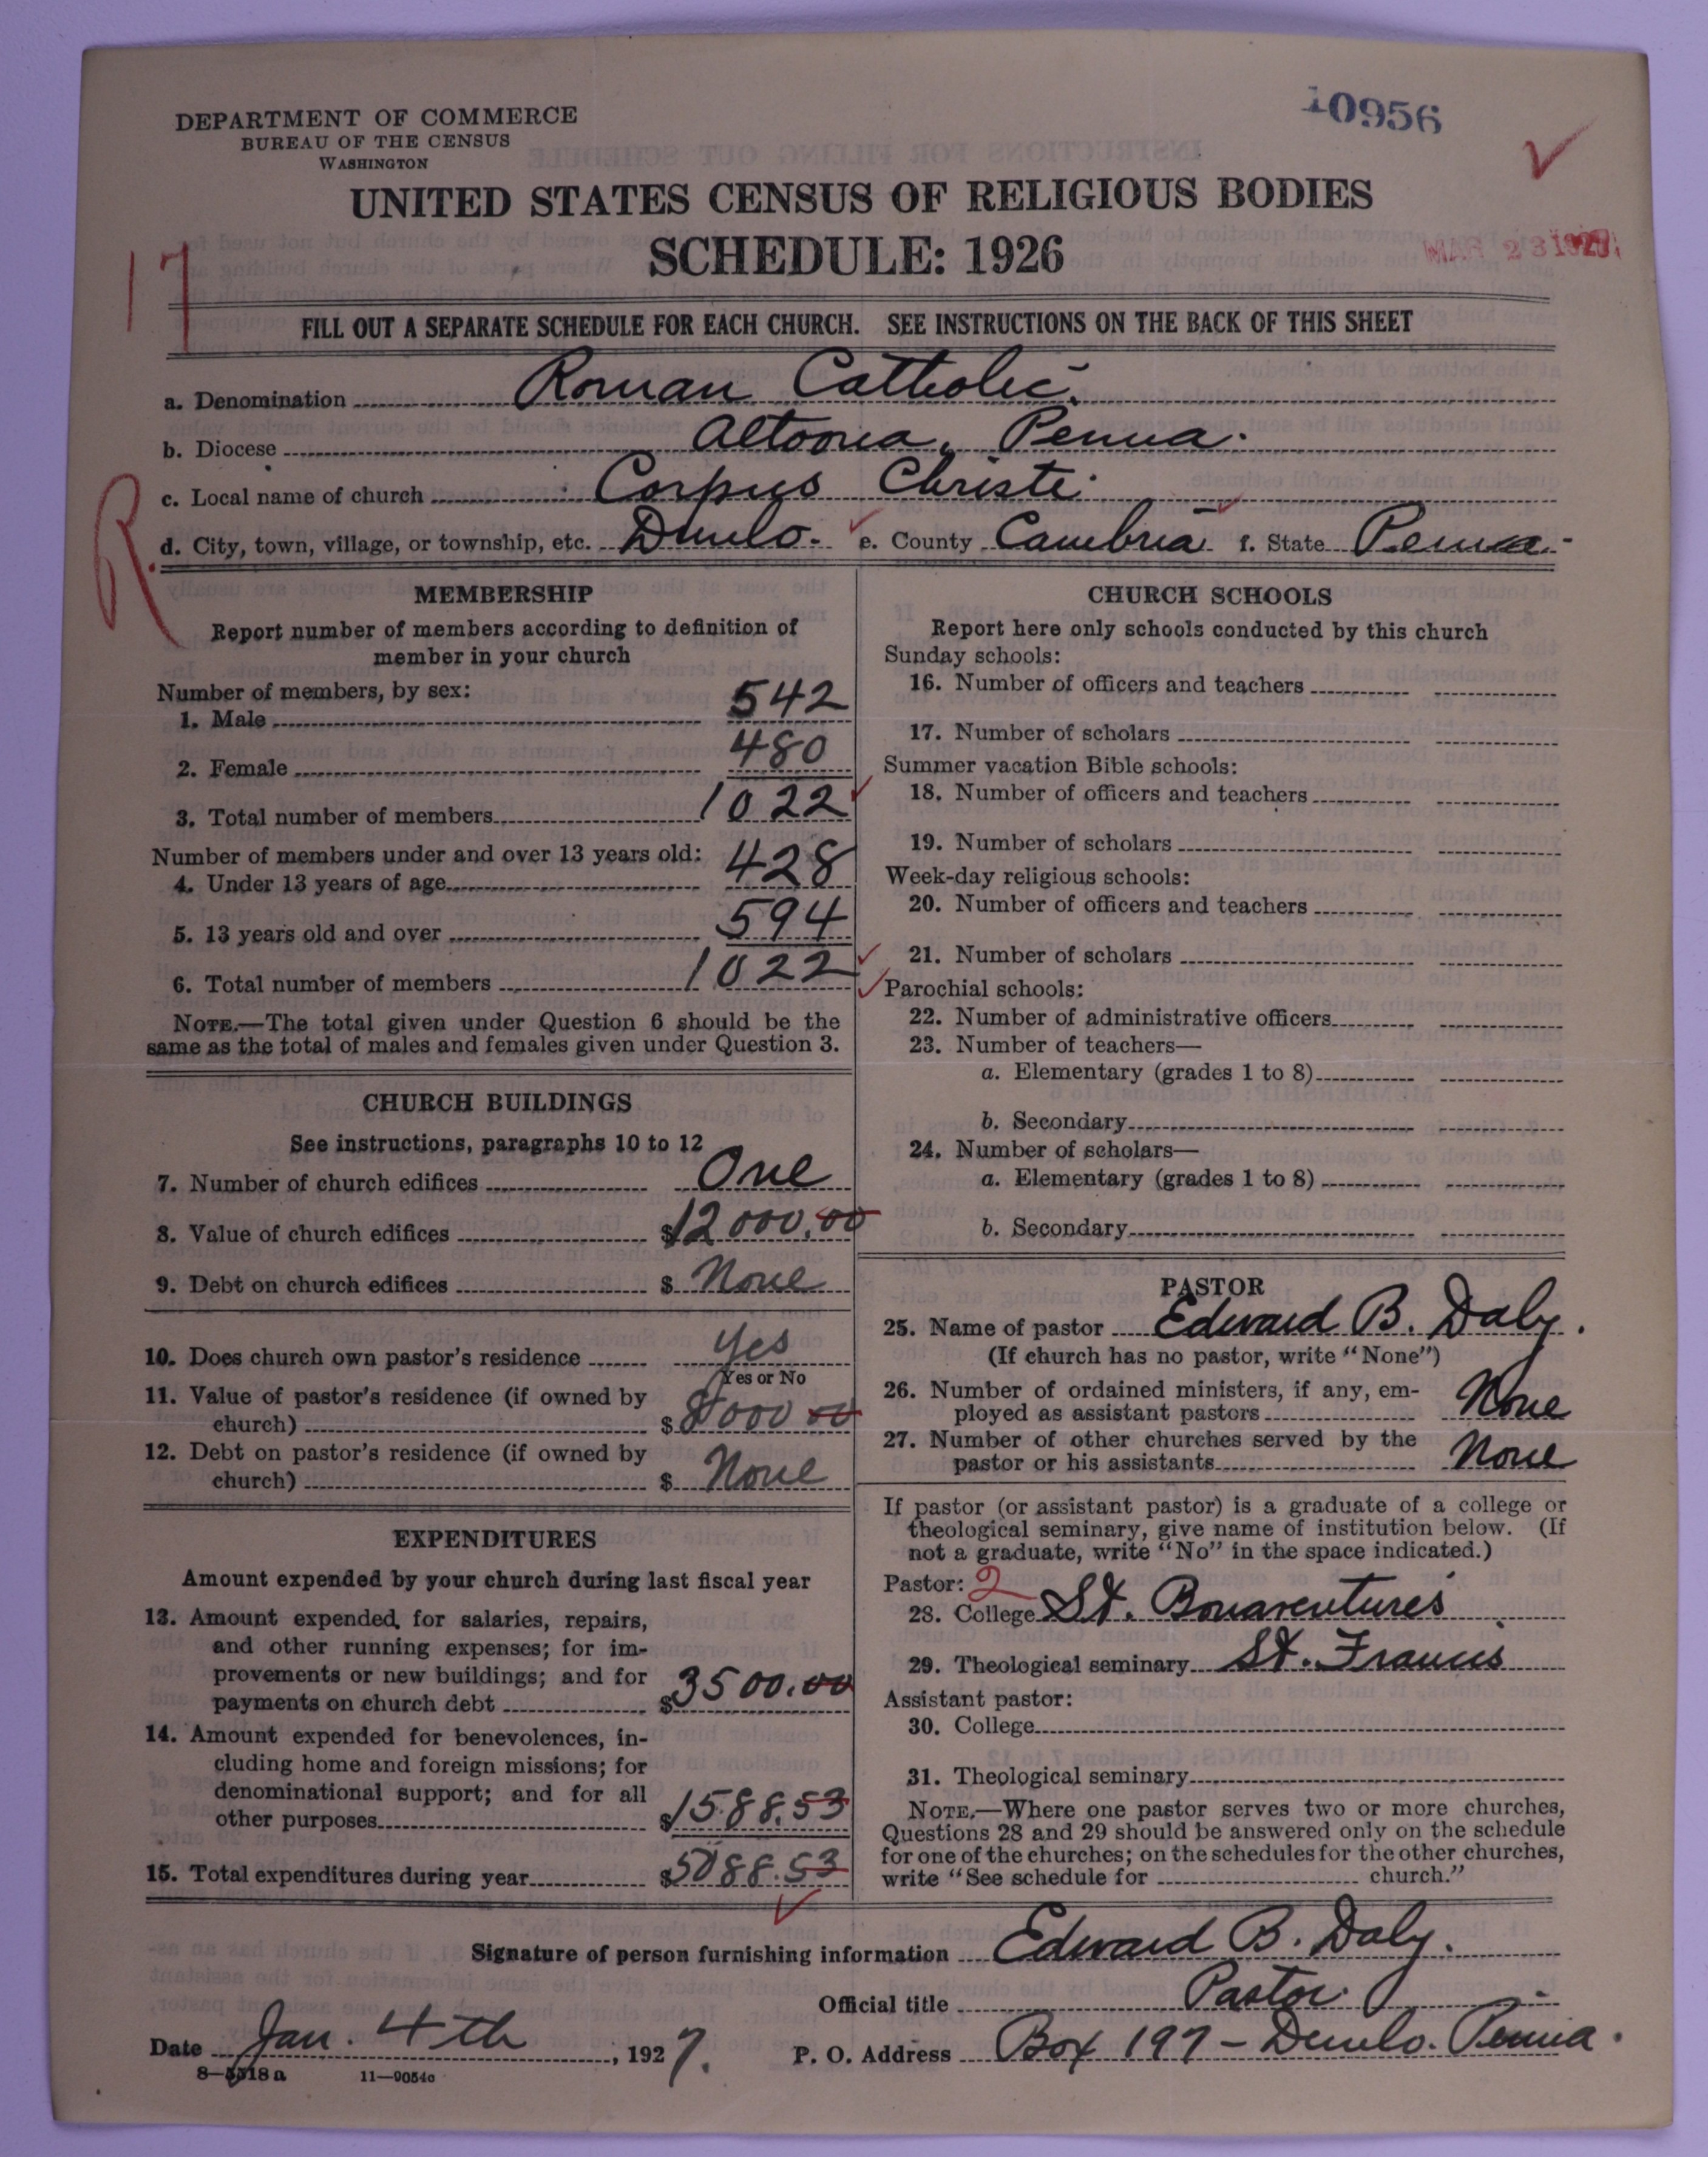 DEPARTMENT OF COMMERCE
BUREAU OF THE CENSUS
WASHINGTON
10956
UNITED STATES CENSUS OF RELIGIOUS BODIES
SCHEDULE: 1926
17
MAR 23 1927
FILL OUT A SEPARATE SCHEDULE FOR EACH CHURCH. SEE INSTRUCTIONS ON THE BACK OF THIS SHEET
a. Denomination Roman Catholic.
b. Diocese Altoona, Penna.
c. Local name of church Corpus Christi
R.
d. City, town, village, or township, etc. Dunlo. e. County Cambria f. State Penna.
MEMBERSHIP
Report number of members according to definition of
member in your church
Number of members, by sex:
1. Male 542
2. Female 480
3. Total number of members 1022
Number of members under and over 13 years old:
4. Under 13 years of age 428
5. 13 years old and over 594
6. Total number of members 1022
NOTE.—The total given under Question 6 should be the
same as the total of males and females given under Question 3.
CHURCH BUILDINGS
See instructions, paragraphs 10 to 12
7. Number of church edifices One
8. Value of church edifices $12000.00
9. Debt on church edifices $ None
10. Does church own pastor's residence Yes
Yes or No
11. Value of pastor's residence (if owned by
church) $8000 00
12. Debt on pastor's residence (if owned by
church) $ None
EXPENDITURES
Amount expended by your church during last fiscal year
13. Amount expended for salaries, repairs,
and other running expenses; for im-
provements or new buildings; and for
payments on church debt $3500.00
14. Amount expended for benevolences, in-
cluding home and foreign missions; for
denominational support; and for all
other purposes $1588.53
15. Total expenditures during year $5088.53
CHURCH SCHOOLS
Report here only schools conducted by this church
Sunday schools:
16. Number of officers and teachers
17. Number of scholars
Summer vacation Bible schools:
18. Number of officers and teachers
19. Number of scholars
Week-day religious schools:
20. Number of officers and teachers
21. Number of scholars
Parochial schools:
22. Number of administrative officers
23. Number of teachers—
a. Elementary (grades 1 to 8)
b. Secondary
24. Number of scholars—
a. Elementary (grades 1 to 8)
b. Secondary
PASTOR
25. Name of pastor Edward B. Daly.
(If church has no pastor, write "None")
26. Number of ordained ministers, if any, em-
ployed as assistant pastors None
27. Number of other churches served by the
pastor or his assistants None
If pastor (or assistant pastor) is a graduate of a college or
theological seminary, give name of institution below. (If
not a graduate, write "No" in the space indicated.)
Pastor: 2
28. College St. Bonaventure's
29. Theological seminary St. Francis
Assistant pastor:
30. College
31. Theological seminary
NOTE.—Where one pastor serves two or more churches,
Questions 28 and 29 should be answered only on the schedule
for one of the churches; on the schedules for the other churches,
write "See schedule for church."
Signature of person furnishing information Edward B. Daly.
Official title Pastor.
Date Jan. 4th, 1927. P. O. Address Box 197 – Dunlo. Penna.
8—5318a 11—9054c